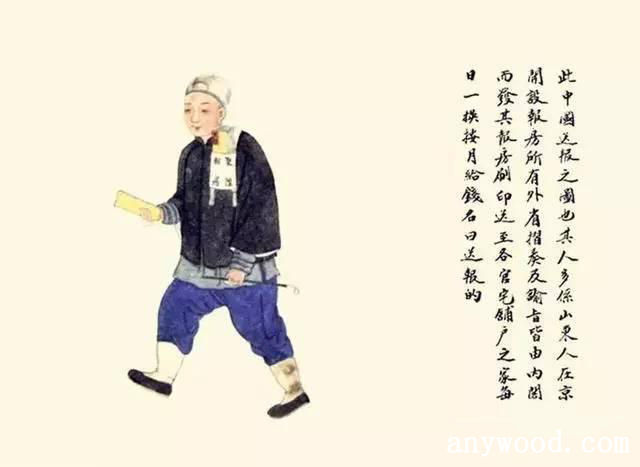 此中國送报之圖也其人多係山東人在京
開設報房所有外省摺奏及諭旨皆由内閣
而發其报房刷印送至各官宅舖户之家每
日一換按月給錢名曰送報的
報房
www.anywood.com